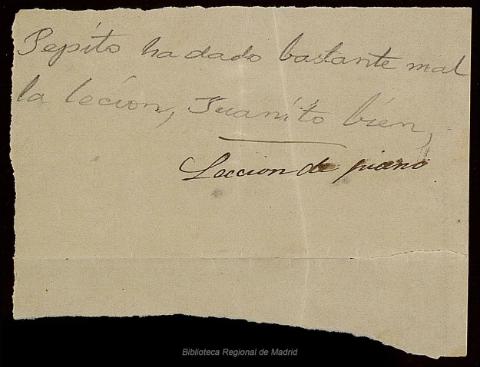 Pepito ha dado bastante mal
la lecíon, Juaníto bíen,
Leccion de piano
Biblioteca Regional de Madrid